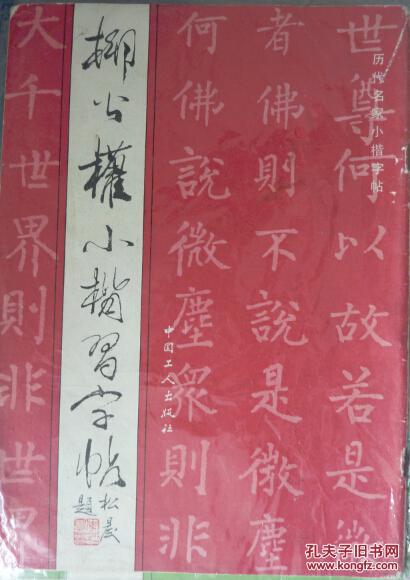 历代名家小楷字帖
世尊何以故若是
者佛則不說是微塵
何佛說微塵眾則非
中国工人出版社
柳公權小楷習字帖
松晨題
大千世界則非世界
孔夫子旧书网